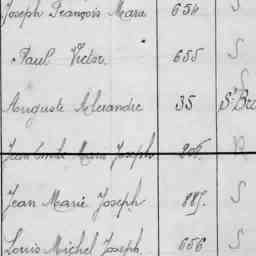 Joseph François Marie 656 S
Paul Victor 655 S
Auguste Alexandre 35 St Br
Jean Marie Joseph
Jean Marie Joseph 887. S
Louis Michel Joseph 656 S